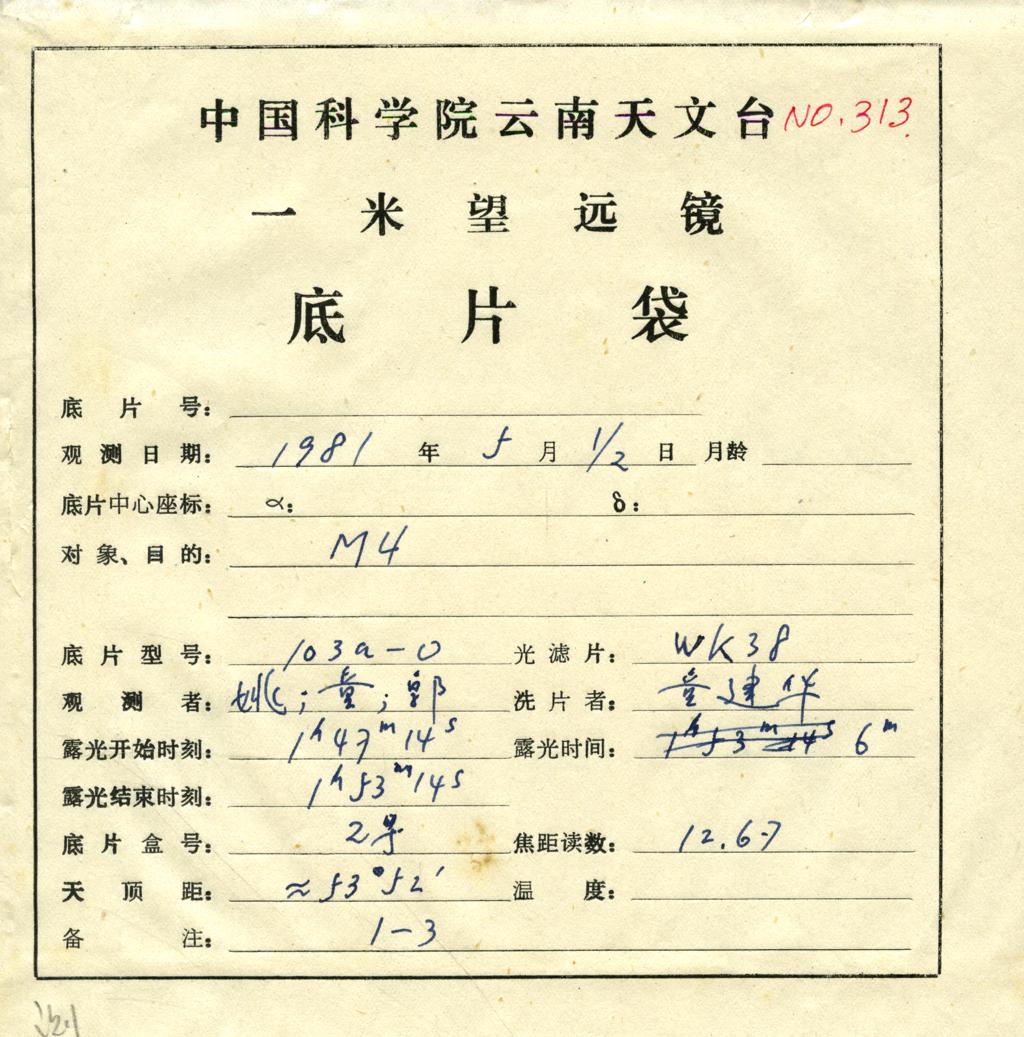 中国科学院云南天文台 NO.313.
一米望远镜
底片袋
底片号：
观测日期： 1981 年 5 月 1/2 日 月龄
底片中心座标： α： δ：
对象、目的： M4
底片型号： 103a-O 光滤片： WK38
观测者： 姚；童；郭 洗片者： 童建华
露光开始时刻： 1h47m14s 露光时间： 1h53m14s 6m
露光结束时刻： 1h53m14s
底片盒号： 2号 焦距读数： 12.67
天顶距： ≈53°52′ 温度：
备注： 1-3